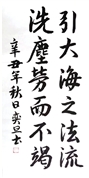 引大海之法流
洗塵勞而不竭
辛丑年秋日奕旦书